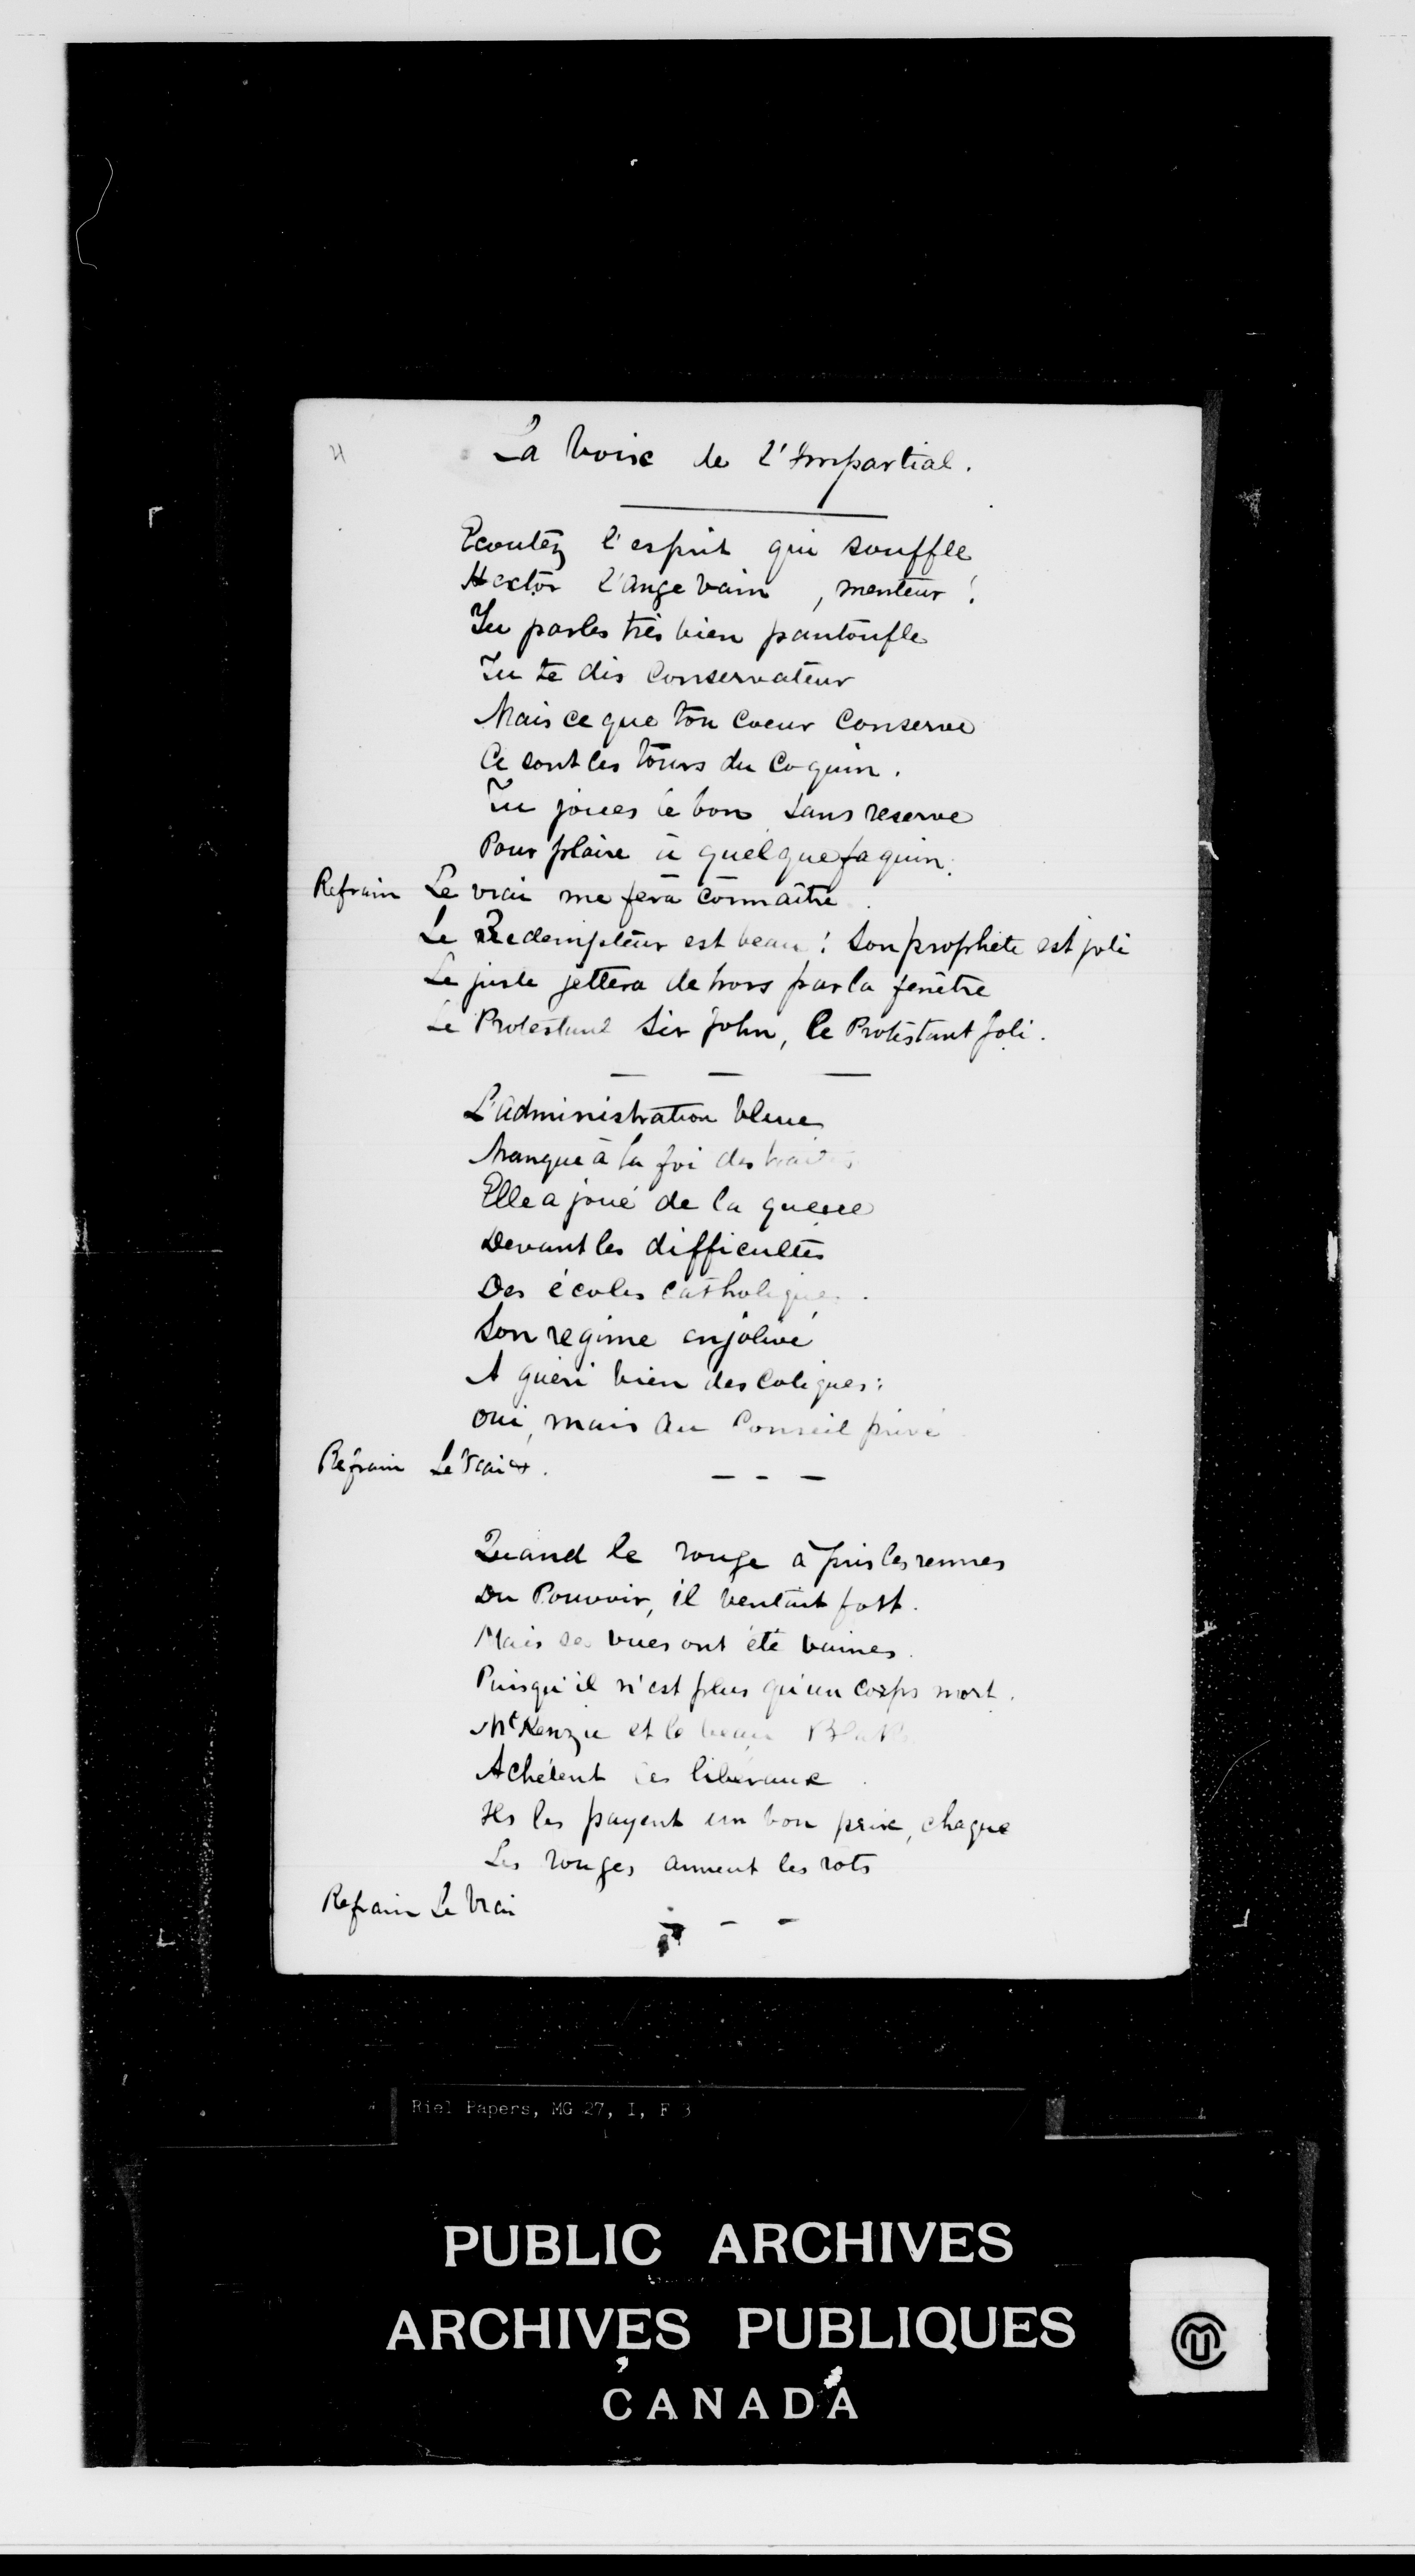 4
La Voix de l'Impartial.
Ecoutez l'esprit qui souffle
Hector l'ange vain , menteur !
Tu parles très bien pantoufle
Tu te dis Conservateur
Mais ce que ton Coeur Conserve
Ce sont les tours du Coquin.
Tu joues le bon sans reserve
Pour plaire à quelque faquin.
Refrain Le vrai me fera connaître.
Le Redempteur est beau ! Son prophète est joli
Le juste jettera dehors par la fenêtre
Le Protestant Sir John, le Protestant Joli.
L'administration bleue
Manque à la foi des traités
Elle a joué de la queue
Devant les difficultés
Des écoles catholiques.
Son regime enjolivé
A guéri bien des Coliques :
Oui, mais au Conseil privé
Refrain Le Vrai &.
Quand le rouge à pris les rennes
Du Pouvoir, il ventait fort.
Mais ses vues ont été vaines.
Puisqu'il n'est plus qu'un corps mort.
McKenzie et le beau Blake
Achètent les libéraux.
Ils les payent un bon prix, chaque
Les rouges aiment les rots
Refrain Le Vrai
Riel Papers, MG 27, I, F 3
PUBLIC ARCHIVES
ARCHIVES PUBLIQUES
CANADA